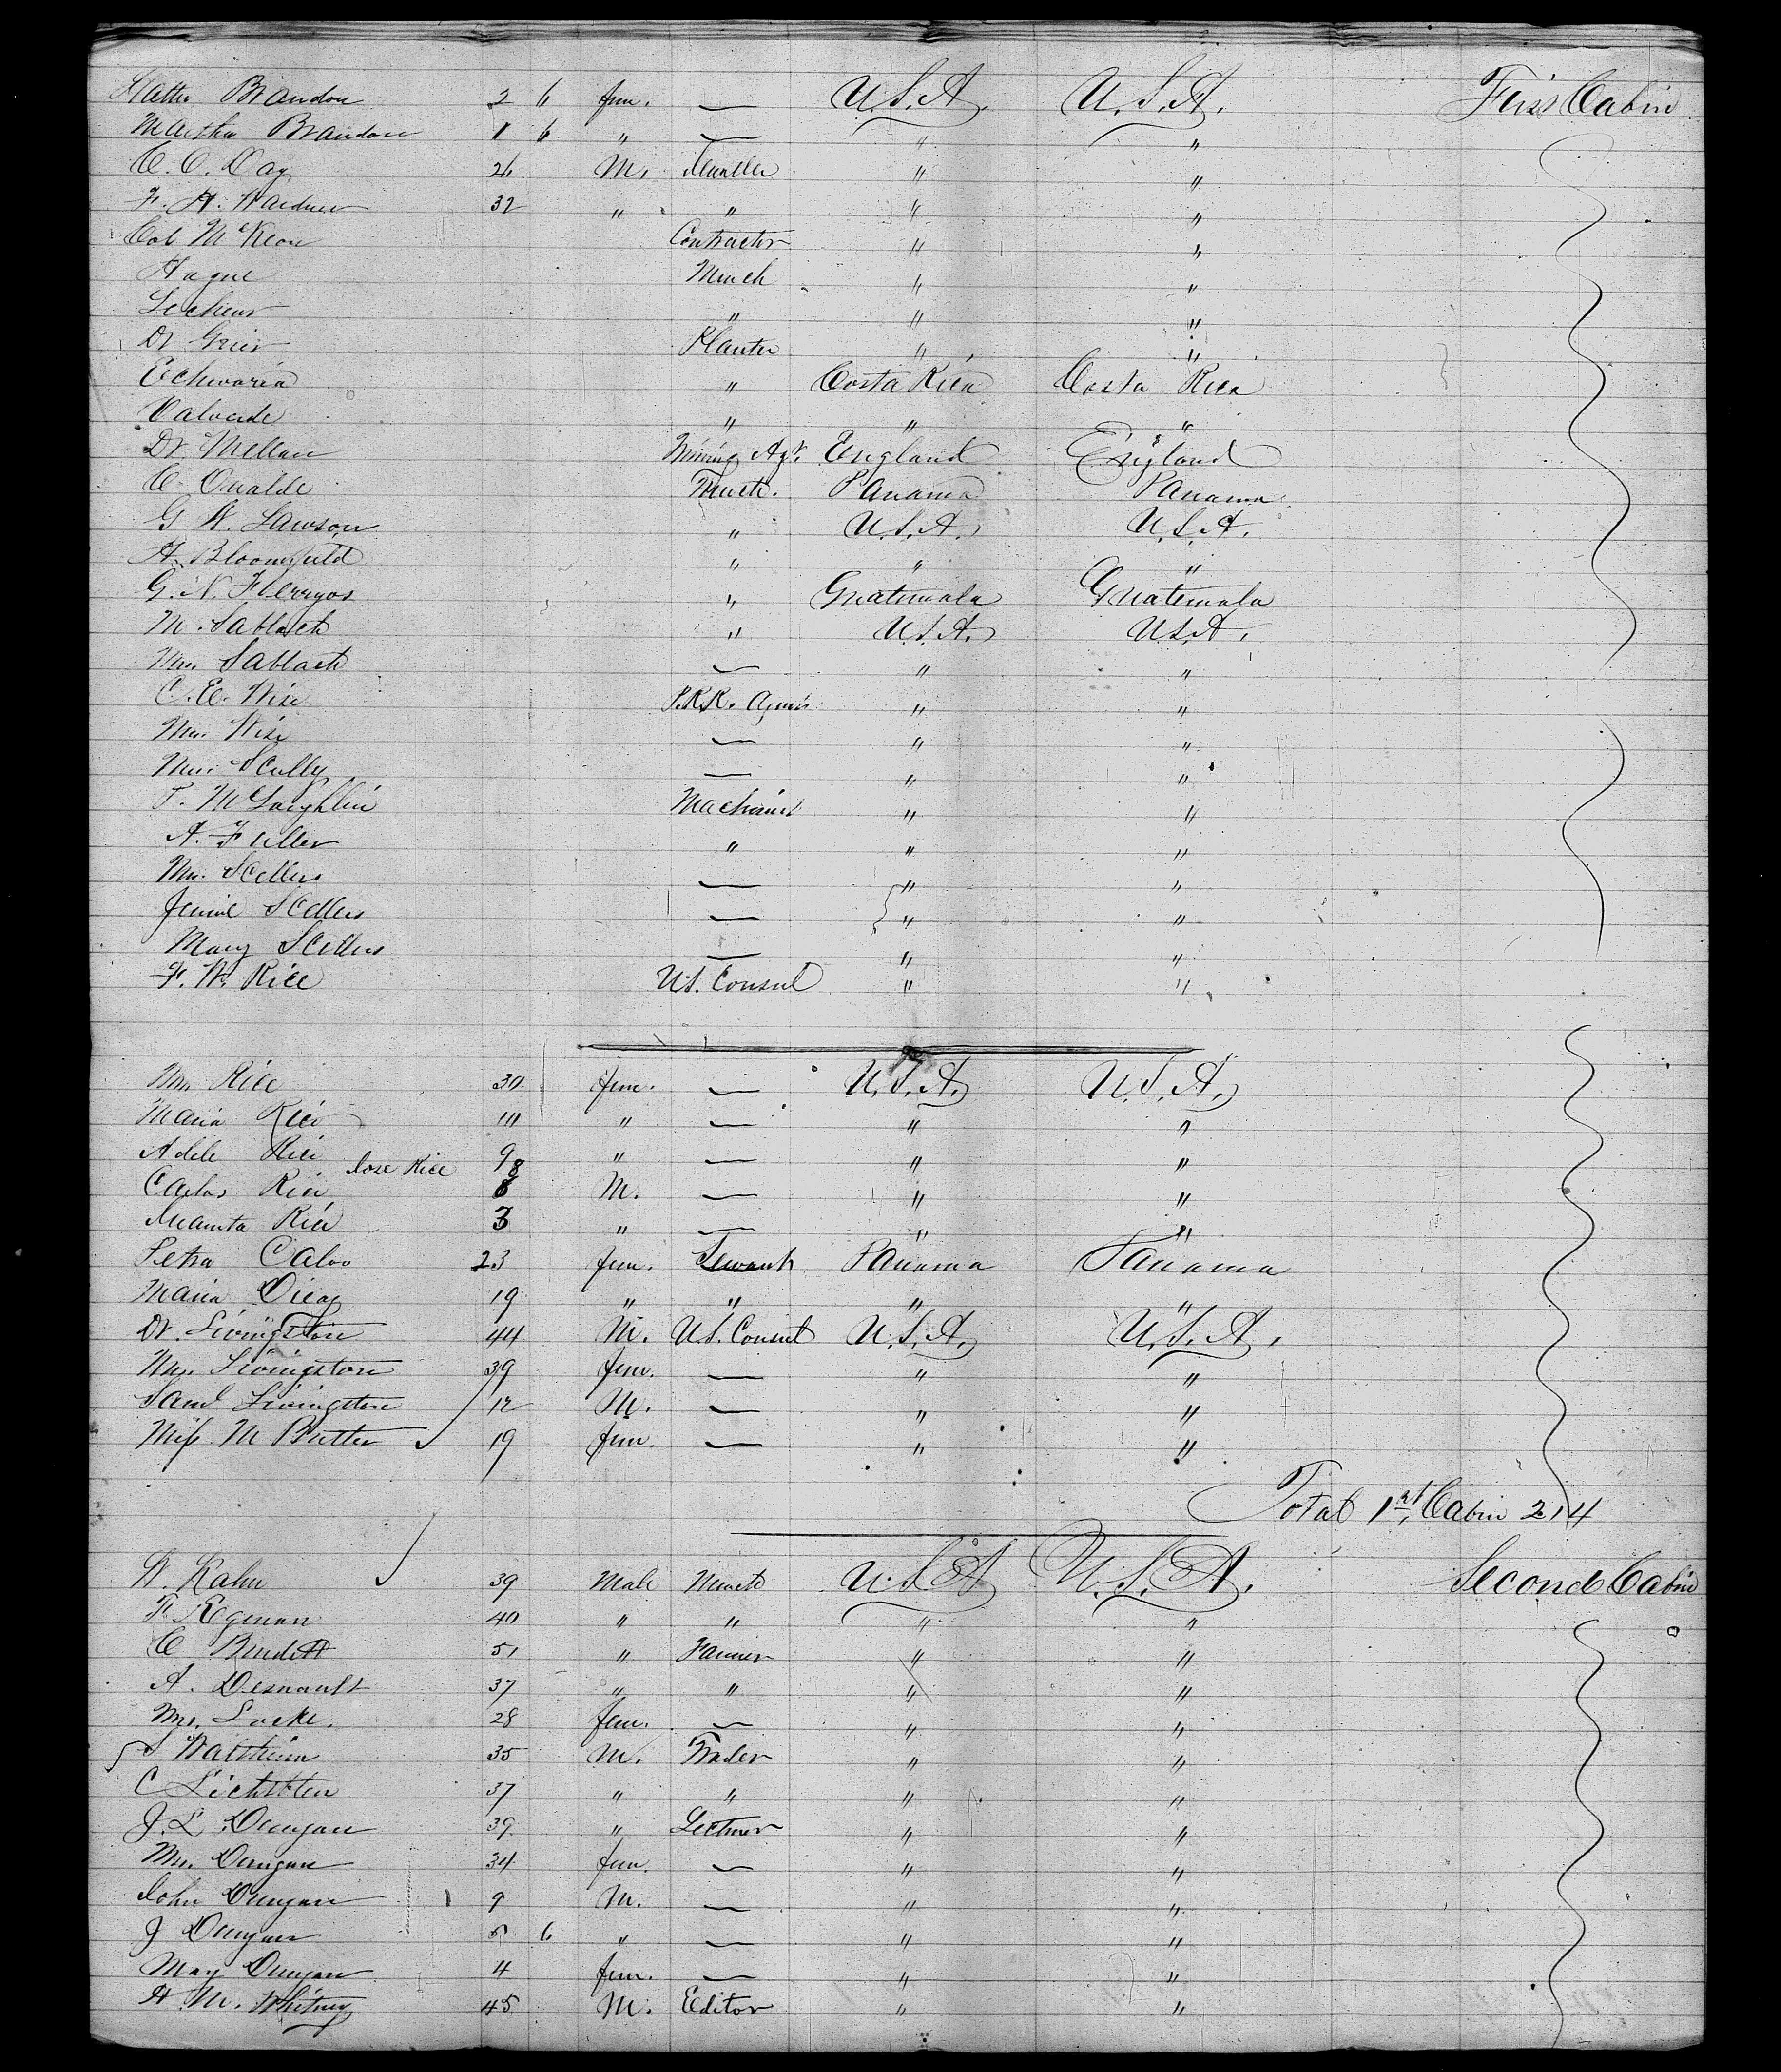 Hattie Brandon 2 6 fem. — U.S.A. U.S.A. First Cabin
Martha Brandon 1 6 " — " "
C. C. Day 26 M. " "
F. A. Wardner 32 " " " "
Col McKeon Contractor " "
Hague Merch " "
" " "
Dr Grier Planter " "
Echevaria " Costa Rica Costa Rica
Valverde " " "
Dr. Mellan Mining Agt. England England
C. Oualde Merch. Panama Panama
G W. Lawson " U.S.A. U.S.A.
H. Bloomfield " " "
G. N. " Guatemala Guatemala
M. Sablach " U.S.A. U.S.A.
Mrs Sablach — " "
C. E. Wise P.R.R. Agent " "
Mrs. Wise — " "
Miss Scully — " "
T. McLaughlin Machinist " "
A. Fuller " " "
Mrs. Sellers — " "
Jennie Sellers — " "
Mary Sellers — " "
F. W. Rice U.S. Consul " "
Mrs Rice 30 fem. — U.S.A. U.S.A.
Maria Rice 10 " — " "
Adele Rice 9 " — " "
Jose Rice 8
Carlos Rice 6 M. — " "
Juanita Rice 3 " — " "
Petra Calvo 23 fem. Servant Panama Panama
Maria Diaz 19 " " " "
Dr. Livingston 44 M. U.S. Consul U.S.A. U.S.A.
Mrs. Livingston 39 fem. — " "
Saml Livingston 12 M. — " "
Miss M Butler 19 fem. — " "
Total 1st Cabin 214
W. Kahn 39 Male Merch U.S.A U.S.A. Second Cabin
F. Egman 40 " " " "
C Burdett 51 " Farmer " "
A. Desnault 37 " " " "
Mrs. Locke. 28 fem. — " "
S Wartheim 35 M. Trader " "
C Lichtsten 37 " " " "
J. L Dungan 39 " Lecturer " "
Mrs. Dungan 34 fem. — " "
John Dungan 9 M. — " "
J Dungan 5 6 " — " "
May Dungan 4 fem. — " "
H M. Whitney 45 M. Editor " "